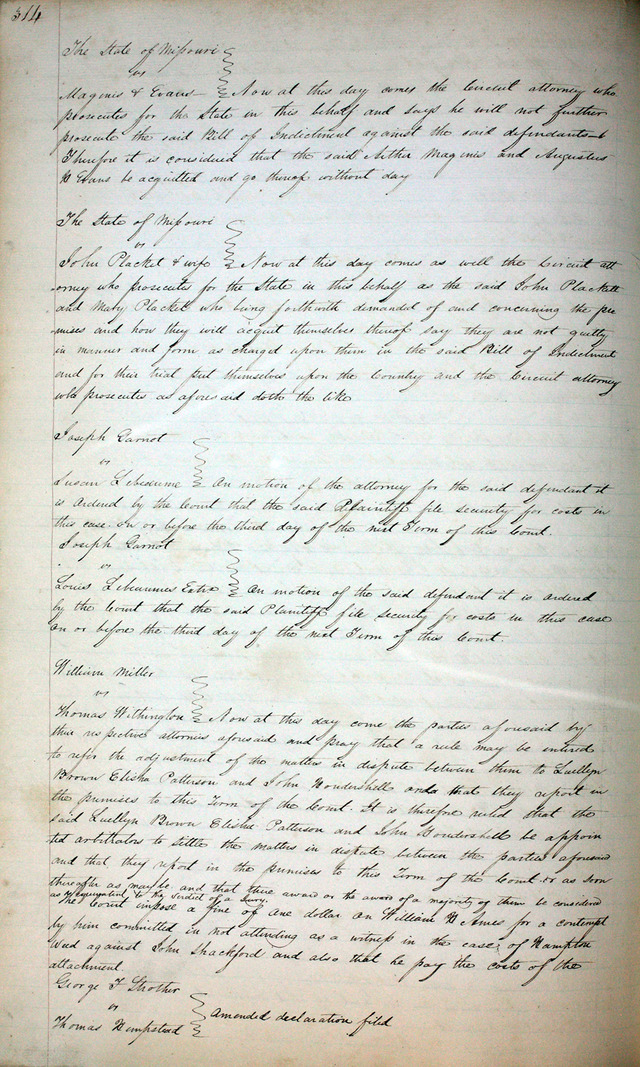 314
The State of Missouri
vs
Maginis & Evans Now at this day comes the Circuit attorney who
prosecutes for the State in this behalf and says he will not further
prosecute the said Bill of Indictment against the said defendants
Therefore it is considered that the said Arther Maginis and Augustus
H Evans be acquitted and go thereof without day
The State of Missouri
vs
John Placket & wife Now at this day comes as well the Circuit att
orney who prosecutes for the State in this behalf as the said John Plackett
and Mary Placket who being forthwith demanded of and concerning the pre
mises and how they will acquit themselves thereof say they are not guilty
in manner and form as charged upon them in the said Bill of Indictment
and for their trial put themselves upon the Country and the Circuit attorney
who prosecutes as aforesaid doth the like
Joseph Garnot
vs
Susan Lebeaume On motion of the attorney for the said defendant it
is ordered by the Court that the said Plaintiff file security for costs in
this case on or before the third day of the next Term of this Court.
Joseph Garnot
vs
Louis Lebeaumes Extx On motion of the said defendant it is ordered
by the Court that the said Plaintiff file security for costs in this case
on or before the third day of the next Term of this Court.
William Miller
vs
Thomas Withington Now at this day come the parties aforesaid by
their respective attornies aforesaid and pray that a rule may be entered
to refer the adjustment of the matters in dispute between them to Luellyn
Brown Elisha Patterson and John Woudershell and that they report in
the premises to this Term of the Court. It is therefore ruled that the
said Luellyn Brown Elisha Patterson and John Woudershell be appoin
ted arbitrators to settle the matters in dispute between the parties aforesaid
and that they report in the premises to this Term of the Court or as soon
thereafter as may be and that there award or the award of a majority of them be considered
as equivalent to the verdict of a Jury.
The Court impose a fine of one dollar on William H Ames for a contempt
by him committed in not attending as a witness in the case of Hampton
Wed against John Shackford and also that he pay the costs of the
attachment.
George F Strother
vs
Thomas Hempstead Amended declaration filed